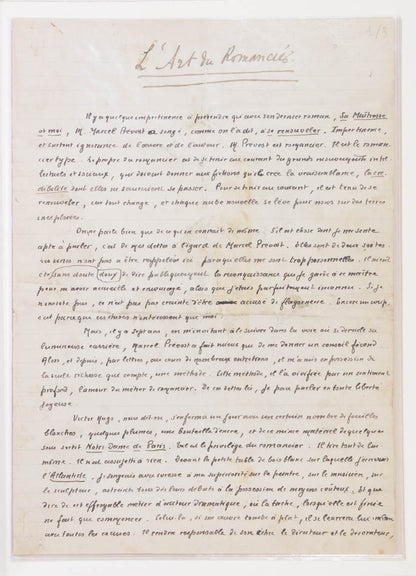 1/3
L'Art du Romancier.
Il y a quelque impertinence à prétendre qu'avec son dernier roman, Sa Maîtresse
et moi, M. Marcel Prévost a songé, comme on l'a dit, à se renouveler. Impertinence,
et surtout ignorance de l'œuvre et de l'auteur. M. Prévost est romancier. Il est le roman-
cier type. Le propre du romancier est de se tenir au courant des grands mouvements intel-
lectuels et sociaux, qui doivent donner aux fictions qu'ils crée la vraisemblance, la cré-
dibilité dont elles ne sauraient se passer. Pour se tenir au courant, il est tenu de se
renouveler, car tout change, et chaque aube nouvelle se lève pour nous sur des terres
inexplorées.
On ne parle bien que de ce qu'on connaît de même. S'il est chose dont je me sente
apte à parler, c'est de ma dette à l'égard de Marcel Prévost. Elles sont de deux sortes.
Les unes n'ont pas à être rappelées ici parce qu'elles me sont trop personnelles. Il m'eût
été sans doute doux de dire publiquement la reconnaissance que je garde à ce maître
pour m'avoir accueilli et encouragé, alors que j'étais parfaitement inconnu. Si je
n'insiste pas, ce n'est pas par crainte d'être accusé de flagornerie. Encore un coup,
c'est parce que ces choses n'intéressent que moi.
Mais, il y a sept ans, en m'invitant à le suivre dans la voie où se déroule sa
lumineuse carrière, Marcel Prévost a fait mieux que de me donner un conseil fécond.
Alors, et depuis, par lettres, au cours de nombreux entretiens, il m'a mis en possession de
la seule richesse qui compte, une méthode. Cette méthode, il l'a vivifiée par un sentiment
profond, l'amour du métier de romancier. De ces dettes là, je puis parler en toute liberté
joyeuse.
Victor Hugo, nous dit-on, s'enferma un jour avec un certain nombre de feuilles
blanches, quelques plumes, une bouteille d'encre, et de ce mince matériel de quelques
sous sortit Notre Dame de Paris. Tel est le privilège du romancier. Il tire tout de lui-
même. Il n'est assujetti à rien. Devant la petite table de bois blanc sur laquelle j'écrivais
l'Atlantide, je songeais avec ivresse à ma supériorité sur le peintre, sur le musicien, sur
le sculpteur, astreints tous dès leurs débuts à la possession de moyens coûteux. Et que
dire de cet effroyable métier d'auteur dramatique, où la tâche, lorsqu'elle est finie
ne fait que commencer. Celui-là, si son œuvre tombe à plat, il se leurrera lui-même
avec toutes les excuses. Il rendra responsable de son échec le directeur et le décorateur,